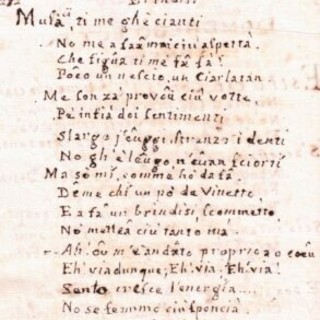 Musa, ti me ghè cianti
No me a faä mai ciù aspettà.
Che figûa ti me fæ fâ!
Poeo un nescio, un Ciarlatan.
Me son zà provôu ciù votte,
Pe infiâ doi sentimenti
Slargo j'êuggi, strenzo i denti
No gh'è lêugo n'êuan sciortì
Ma so mì, comme ho da fâ.
Dême chì un pò de Vinetto,
E a fâ un brindisi, scommetto,
No metteâ ciù tanto mâ.
Ah! ôu m'è andæto proprio a o cœu
Eh! via dunque, Eh! via, Eh! via!
Sento cresce l'energia....
No se femmo ciù sponciâ.